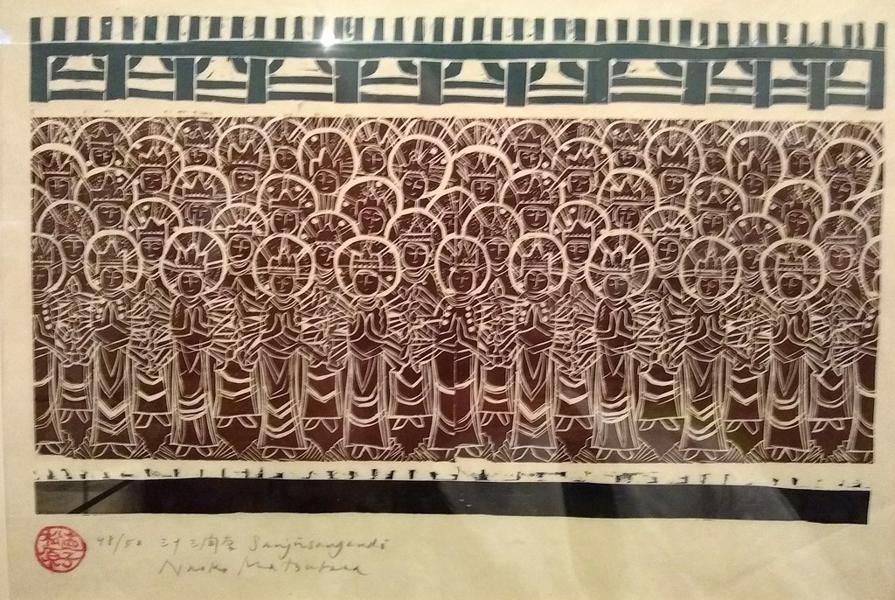 松原直子
48/50 三十三間堂 Sanjūsangendō
Naoko Matsubara